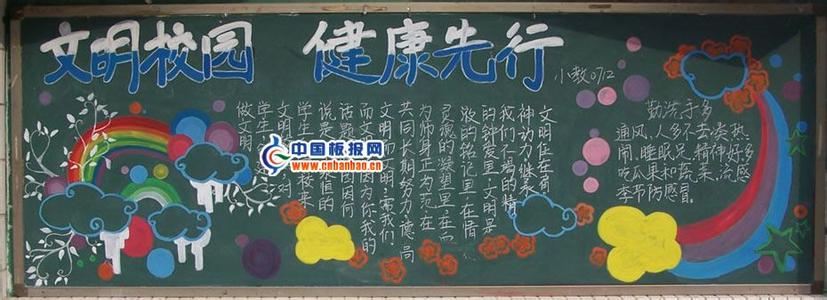 文明校园 健康先行
小教0712
做文明
学生 对
文明
学生 校来
说是 恒的
话题 因何
而文 因为你我的
文明,而文明,需我们
共同长期努力,读高
为师身正为范,在
灵魂的凝望里,在
的铭记里,在情
的钟爱里,文明是
我们不竭的精
神动力,继承
文明住在有
中国板报网
www.cnbanbao.cn
勤洗手多
通风、人多不去凑热
闹、睡眠足、精神好多
吃瓜果和蔬菜、流感
季节防感冒。